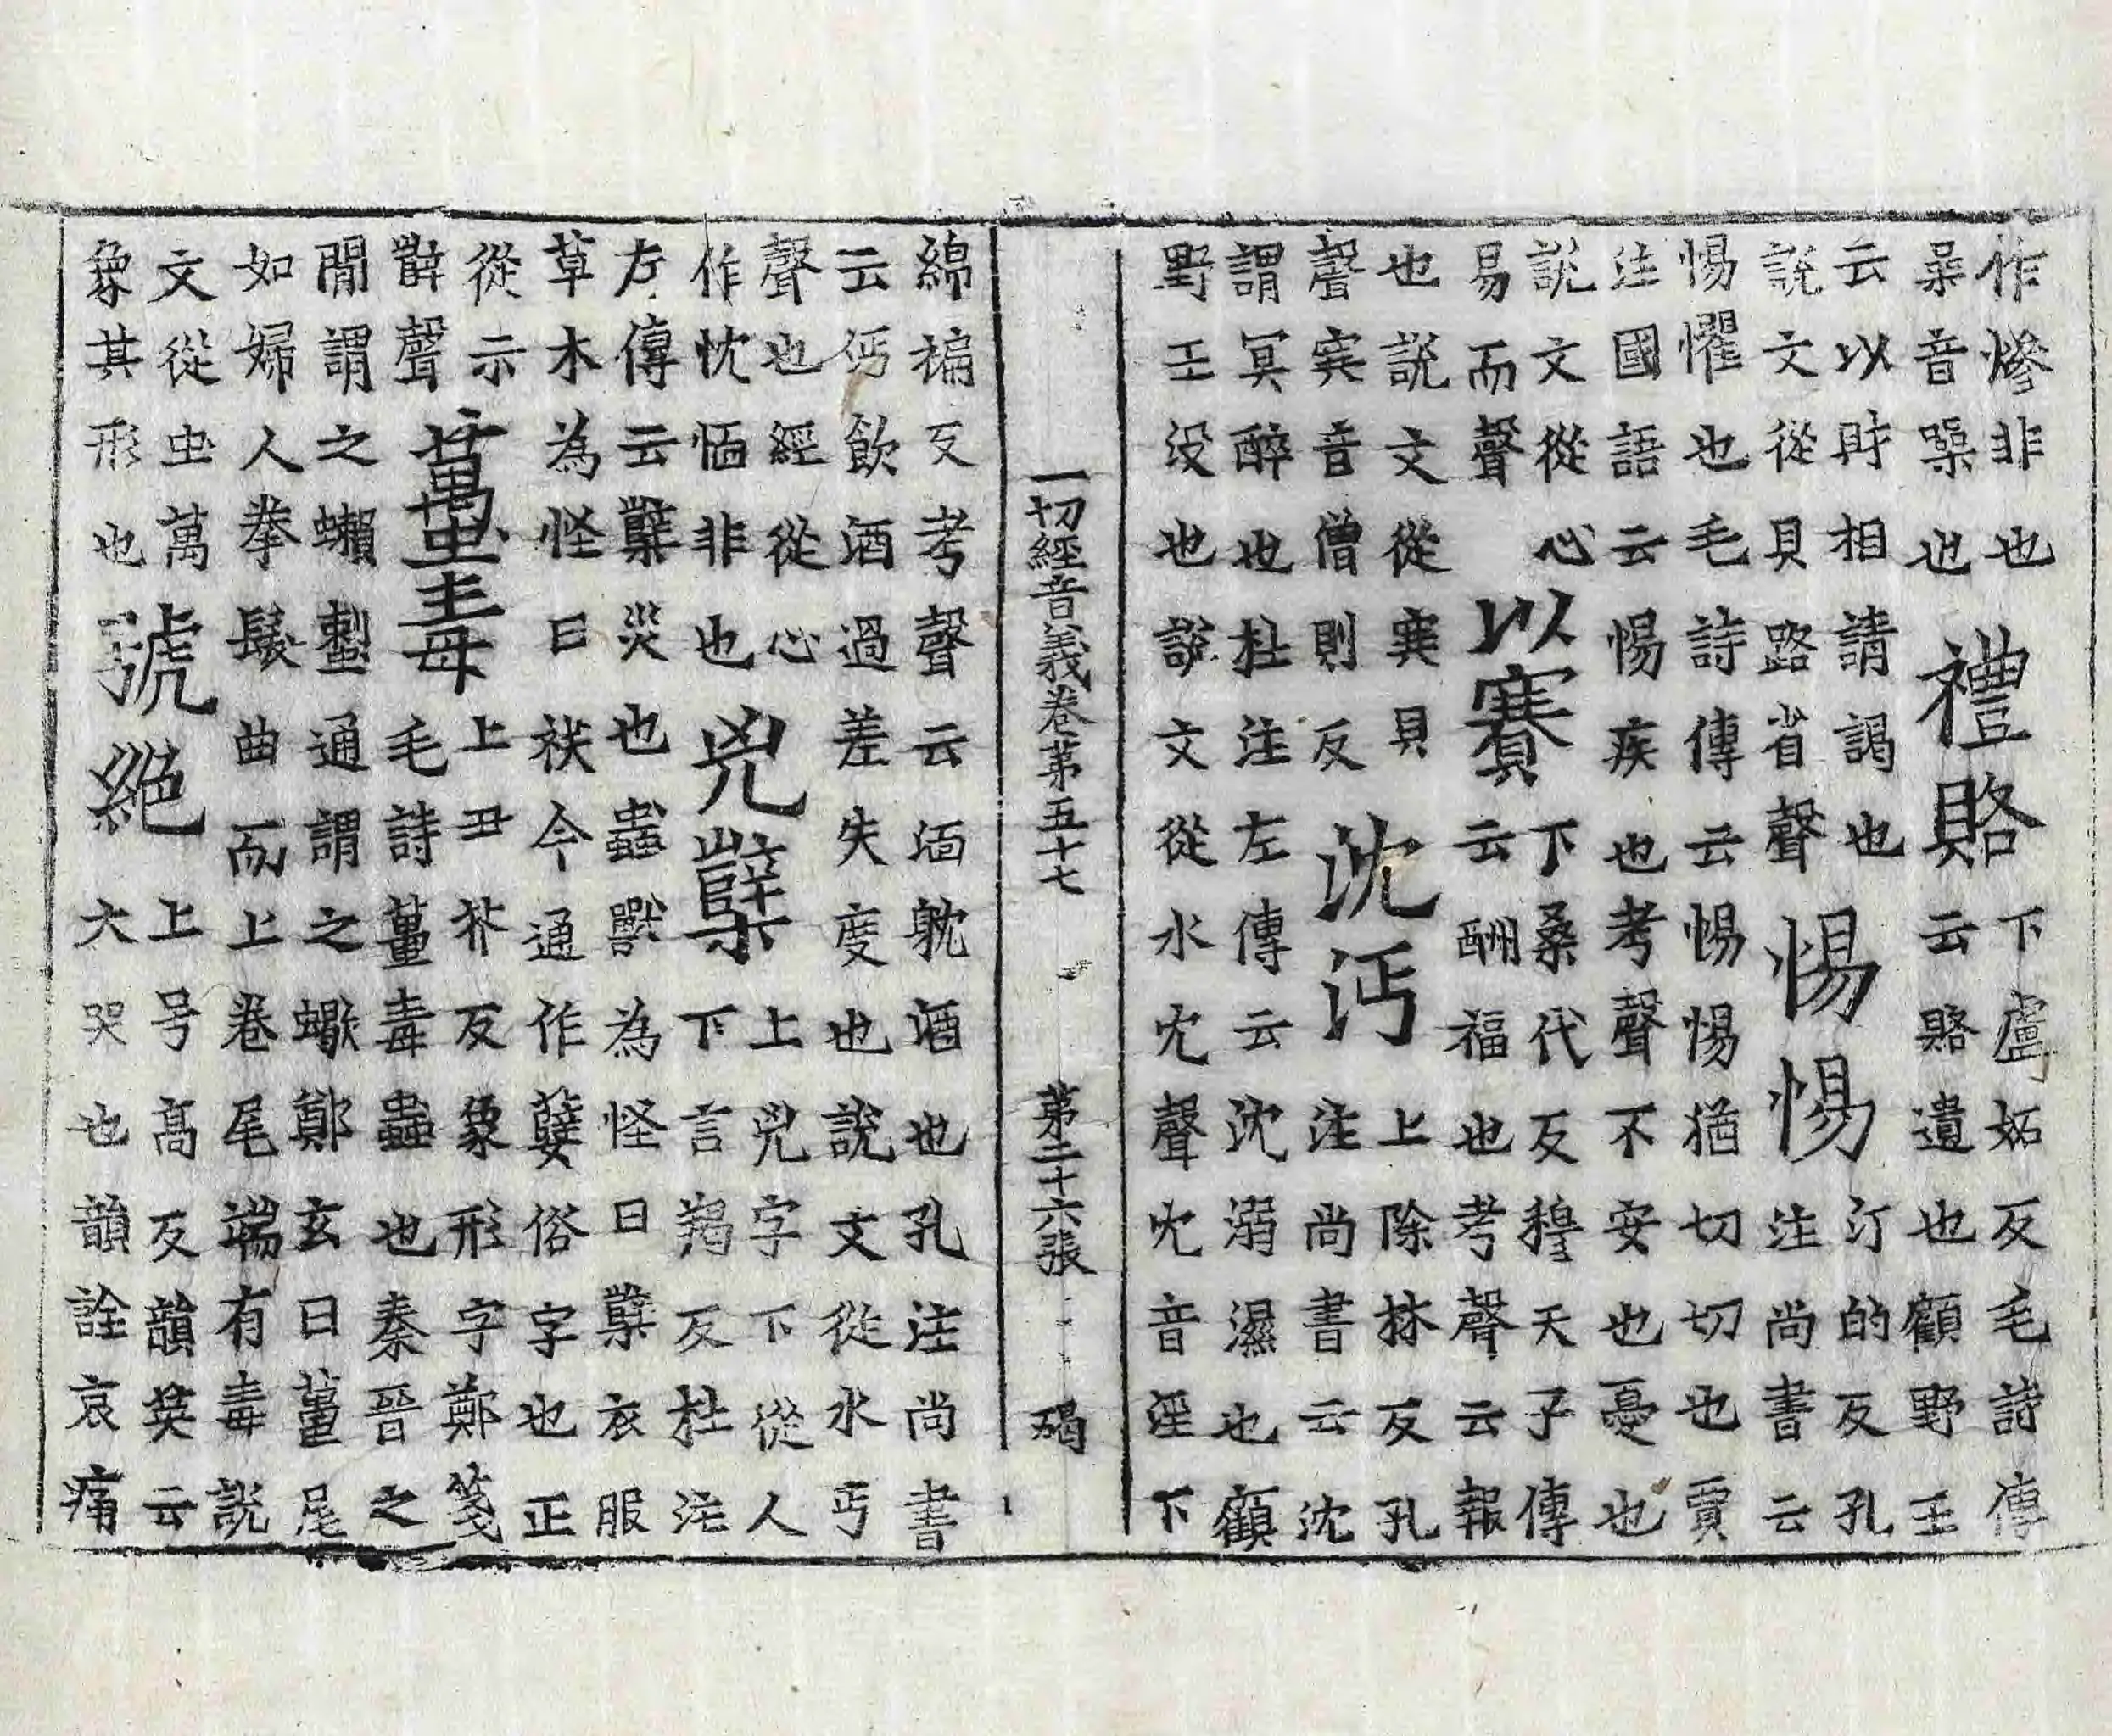 作慘非也
喿音噪也
禮賂
下盧妬反毛詩傳
云賂遺也顧野王
云以財相請謁也
說文從貝路省聲
惕惕
汀的反孔
注尚書云
惕懼也毛詩傳云惕惕猶切切也賈
注國語云惕疾也考聲不安也憂也
說文從心
易而聲
以賽
下桑代反穆天子傳
云酬福也考聲云報
也說文從𡨄貝
聲𡨄音僧則反
沈沔
上除林反孔
注尚書云沈
謂冥醉也杜注左傳云沈溺濕也顧
野王没也說文從水冘聲冘音淫下
一切經音義卷第五十七 第二十六張 碣
綿褊反考聲云湎躭酒也孔注尚書
云沔飲酒過差失度也說文從水丏
聲也經從心
作忱愐非也
兇櫱
上兇字下從人
下言羯反杜注
左傳云櫱災也蟲獸為怪曰櫱衣服
草木為怪曰祅今通作孽俗字也正
從示
辥聲
蠆毒
上丑芥反象形字鄭箋
毛詩蠆毒蟲也秦晉之
間謂之蠍鄭玄曰蠆尾
如婦人拳髮曲而上卷尾端有毒說
文從虫萬
象其形也
號絕
上号高反韻英云
大哭也韻詮哀痛